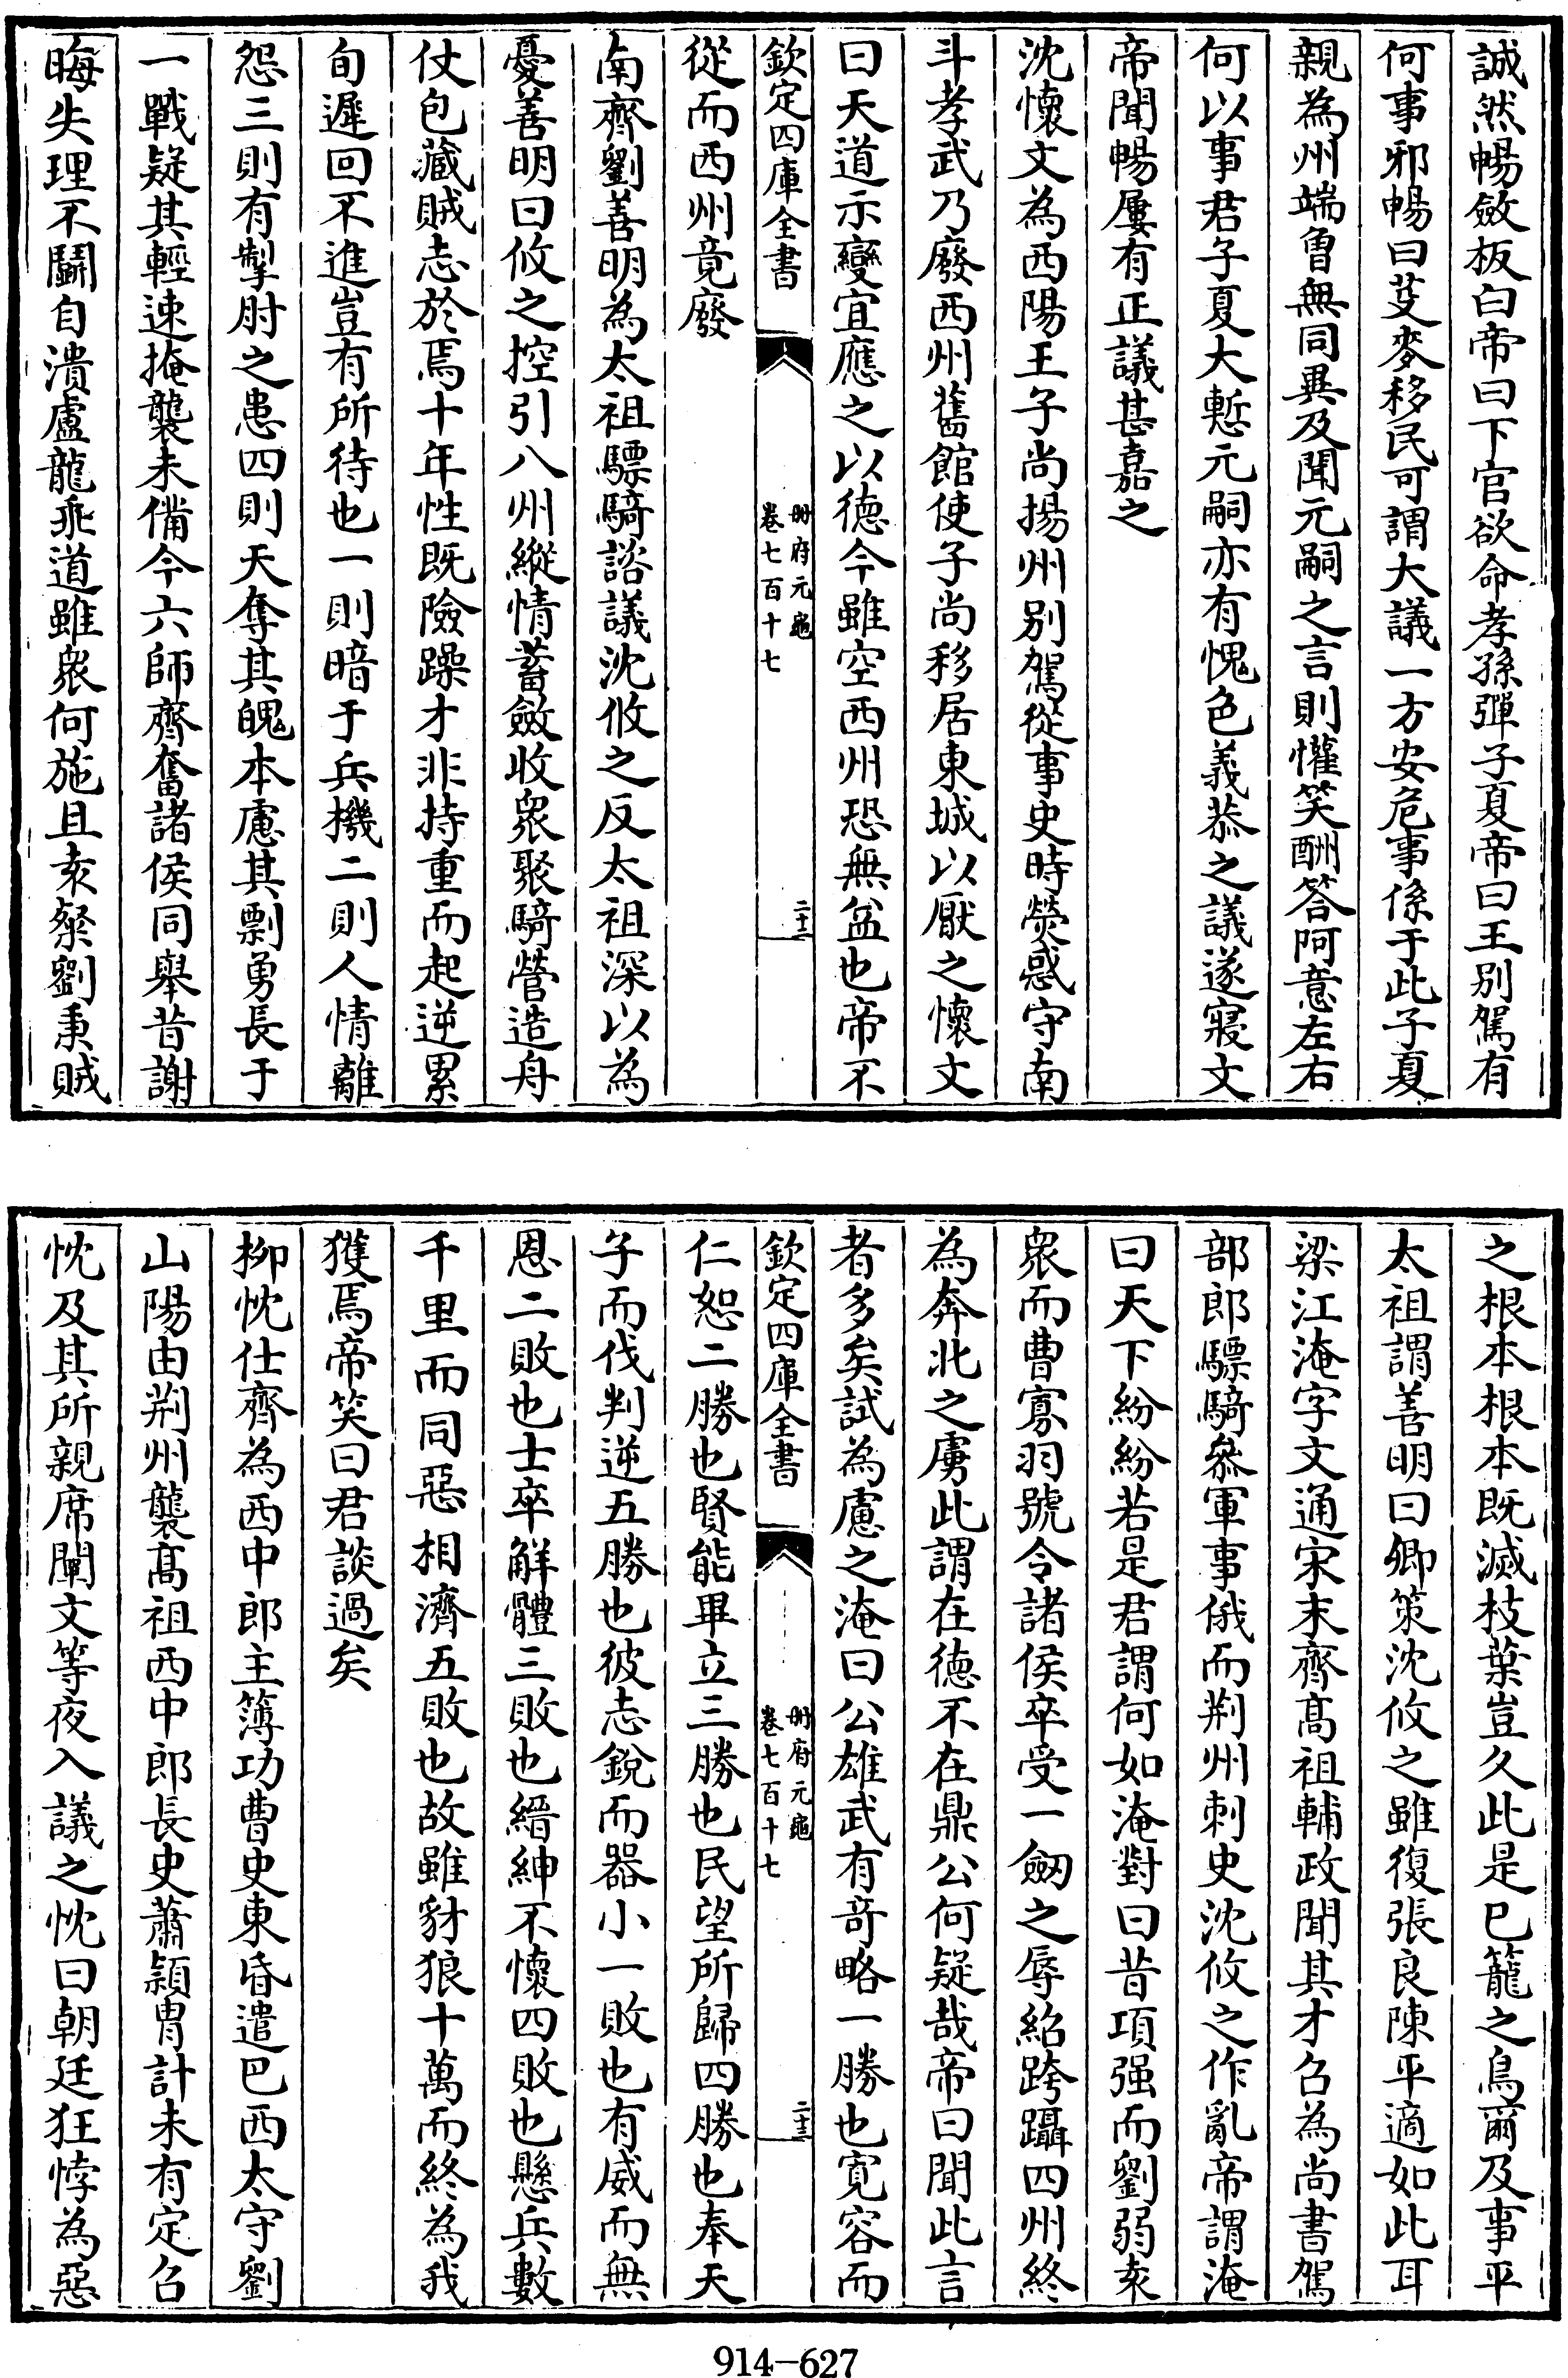 誠然暢斂板白帝曰下官欲命孝孫彈子夏帝曰王别駕有
何事邪暢曰芟麥移民可謂大議一方安危事係于此子夏
親為州端曾無同異及聞元嗣之言則懽笑酬答阿意左右
何以事君子夏大慙元嗣亦有愧色義恭之議遂寢文
帝聞暢屢有正議甚嘉之
沈懷文為西陽王子尚揚州别駕從事史時熒惑守南
斗孝武乃廢西州舊館使子尚移居東城以厭之懷文
曰天道示變宜應之以德今雖空西州恐無益也帝不
欽定四庫全書
冊府元龜
卷七百十七
二十二
從而西州竟廢
南齊劉善明為太祖驃騎諮議沈攸之反太祖深以為
憂善明曰攸之控引八州縱情蓄斂收衆聚騎營造舟
仗包藏賊志於焉十年性既險躁才非持重而起逆累
旬遲回不進豈有所待也一則暗于兵機二則人情離
怨三則有掣肘之患四則天奪其魄本慮其剽勇長于
一戰疑其輕速掩襲未備今六師齊奮諸侯同舉昔謝
晦失理不鬭自潰盧龍乖道雖衆何施且袁粲劉秉賊
之根本根本既滅枝葉豈久此是已籠之鳥爾及事平
太祖謂善明曰卿策沈攸之雖復張良陳平適如此耳
梁江淹字文通宋末齊髙祖輔政聞其才召為尚書駕
部郎驃騎參軍事俄而荆州刺史沈攸之作亂帝謂淹
曰天下紛紛若是君謂何如淹對曰昔項强而劉弱袁
衆而曹寡羽號令諸侯卒受一劒之辱紹跨躡四州終
為奔北之虜此謂在德不在鼎公何疑哉帝曰聞此言
者多矣試為慮之淹曰公雄武有竒略一勝也寛容而
欽定四庫全書
冊府元龜
卷七百十七
二十三
仁恕二勝也賢能畢立三勝也民望所歸四勝也奉天
子而伐判逆五勝也彼志銳而器小一敗也有威而無
恩二敗也士卒解體三敗也縉紳不懷四敗也懸兵數
千里而同惡相濟五敗也故雖豺狼十萬而終為我
獲焉帝笑曰君談過矣
柳忱仕齊為西中郎主簿功曹史東昏遣巴西太守劉
山陽由荆州襲髙祖西中郎長史蕭頴胄計未有定召
忱及其所親席闡文等夜入議之忱曰朝廷狂悖為惡
914-627